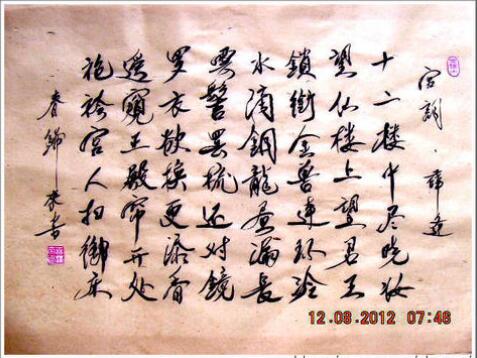 宫詞·薛逢
十二楼中尽晓妆
望仙楼上望君王
鎖衔金兽連环冷
水滴銅龙昼漏長
雲髻罢梳还对镜
罗衣欲换更添香
遥窥正殿帘开处
袍袴宫人扫御床
春歸
12.08.2012 07:46